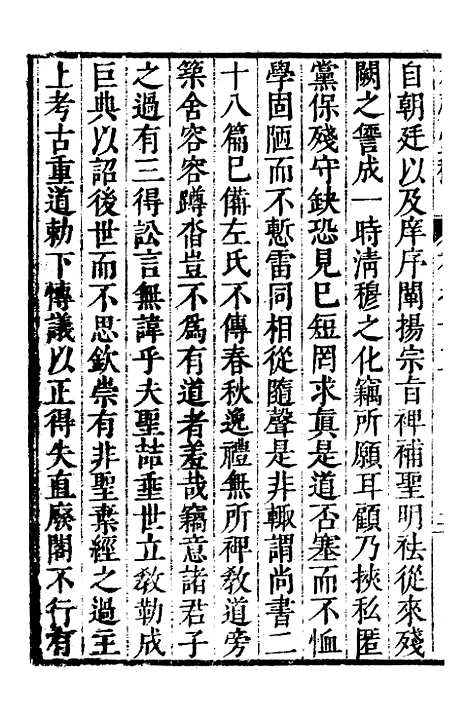 自朝廷以及庠序闡揚宗旨裨補聖明祛從來殘
闕之讐成一時清穆之化竊所願耳顧乃挾私匿
黨保殘守缺恐見已短罔求眞是道否塞而不恤
學固陋而不慙雷同相從隨聲是非輙謂尚書二
十八篇已備左氏不傳春秋逸禮無所裨敎道旁
築舍容容蹲沓豈不爲有道者羞哉竊意諸君子
之過有三得訟言無諱乎夫聖喆垂世立敎勒成
巨典以詔後世而不思欽崇有非聖棄經之過主
上考古重道勅下愽議以正得失直廢閣不行有